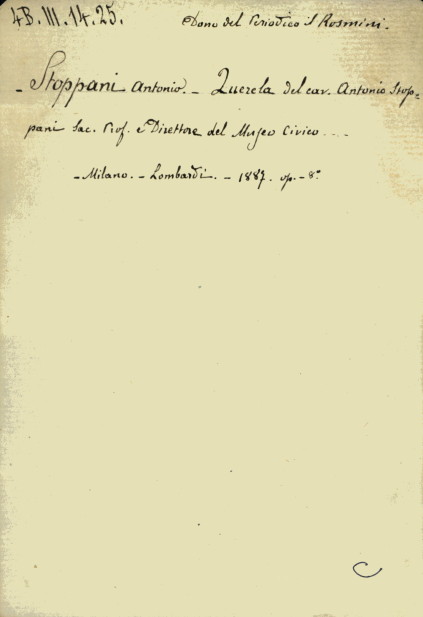 4B. III. 14. 25.
Dono del Periodico il Rosmini.
- Stoppani Antonio. - Querela del cav. Antonio Stop=
pani Sac. Prof. e Direttore del Museo Civico ...
- Milano. - Lombardi. - 1887. op. - 8°.
C